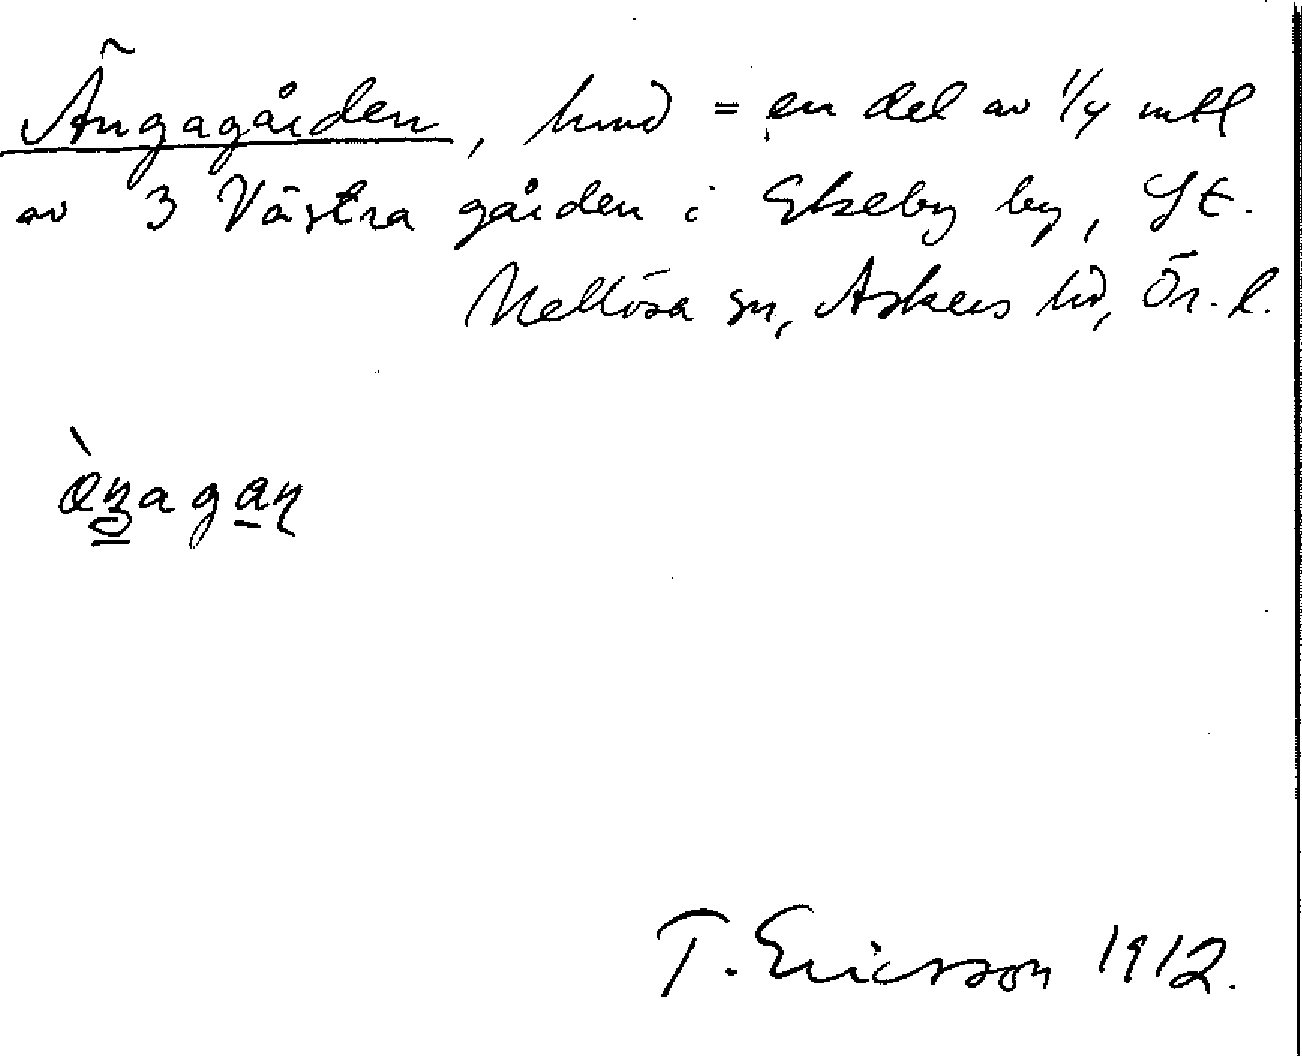 Ängagården, hmd = en del av 1/4 mtl
av 3 Västra gården i Ekeby by, St.
Mellösa sn, Askers hd, Ör. l.
T. Ericsson 1912.